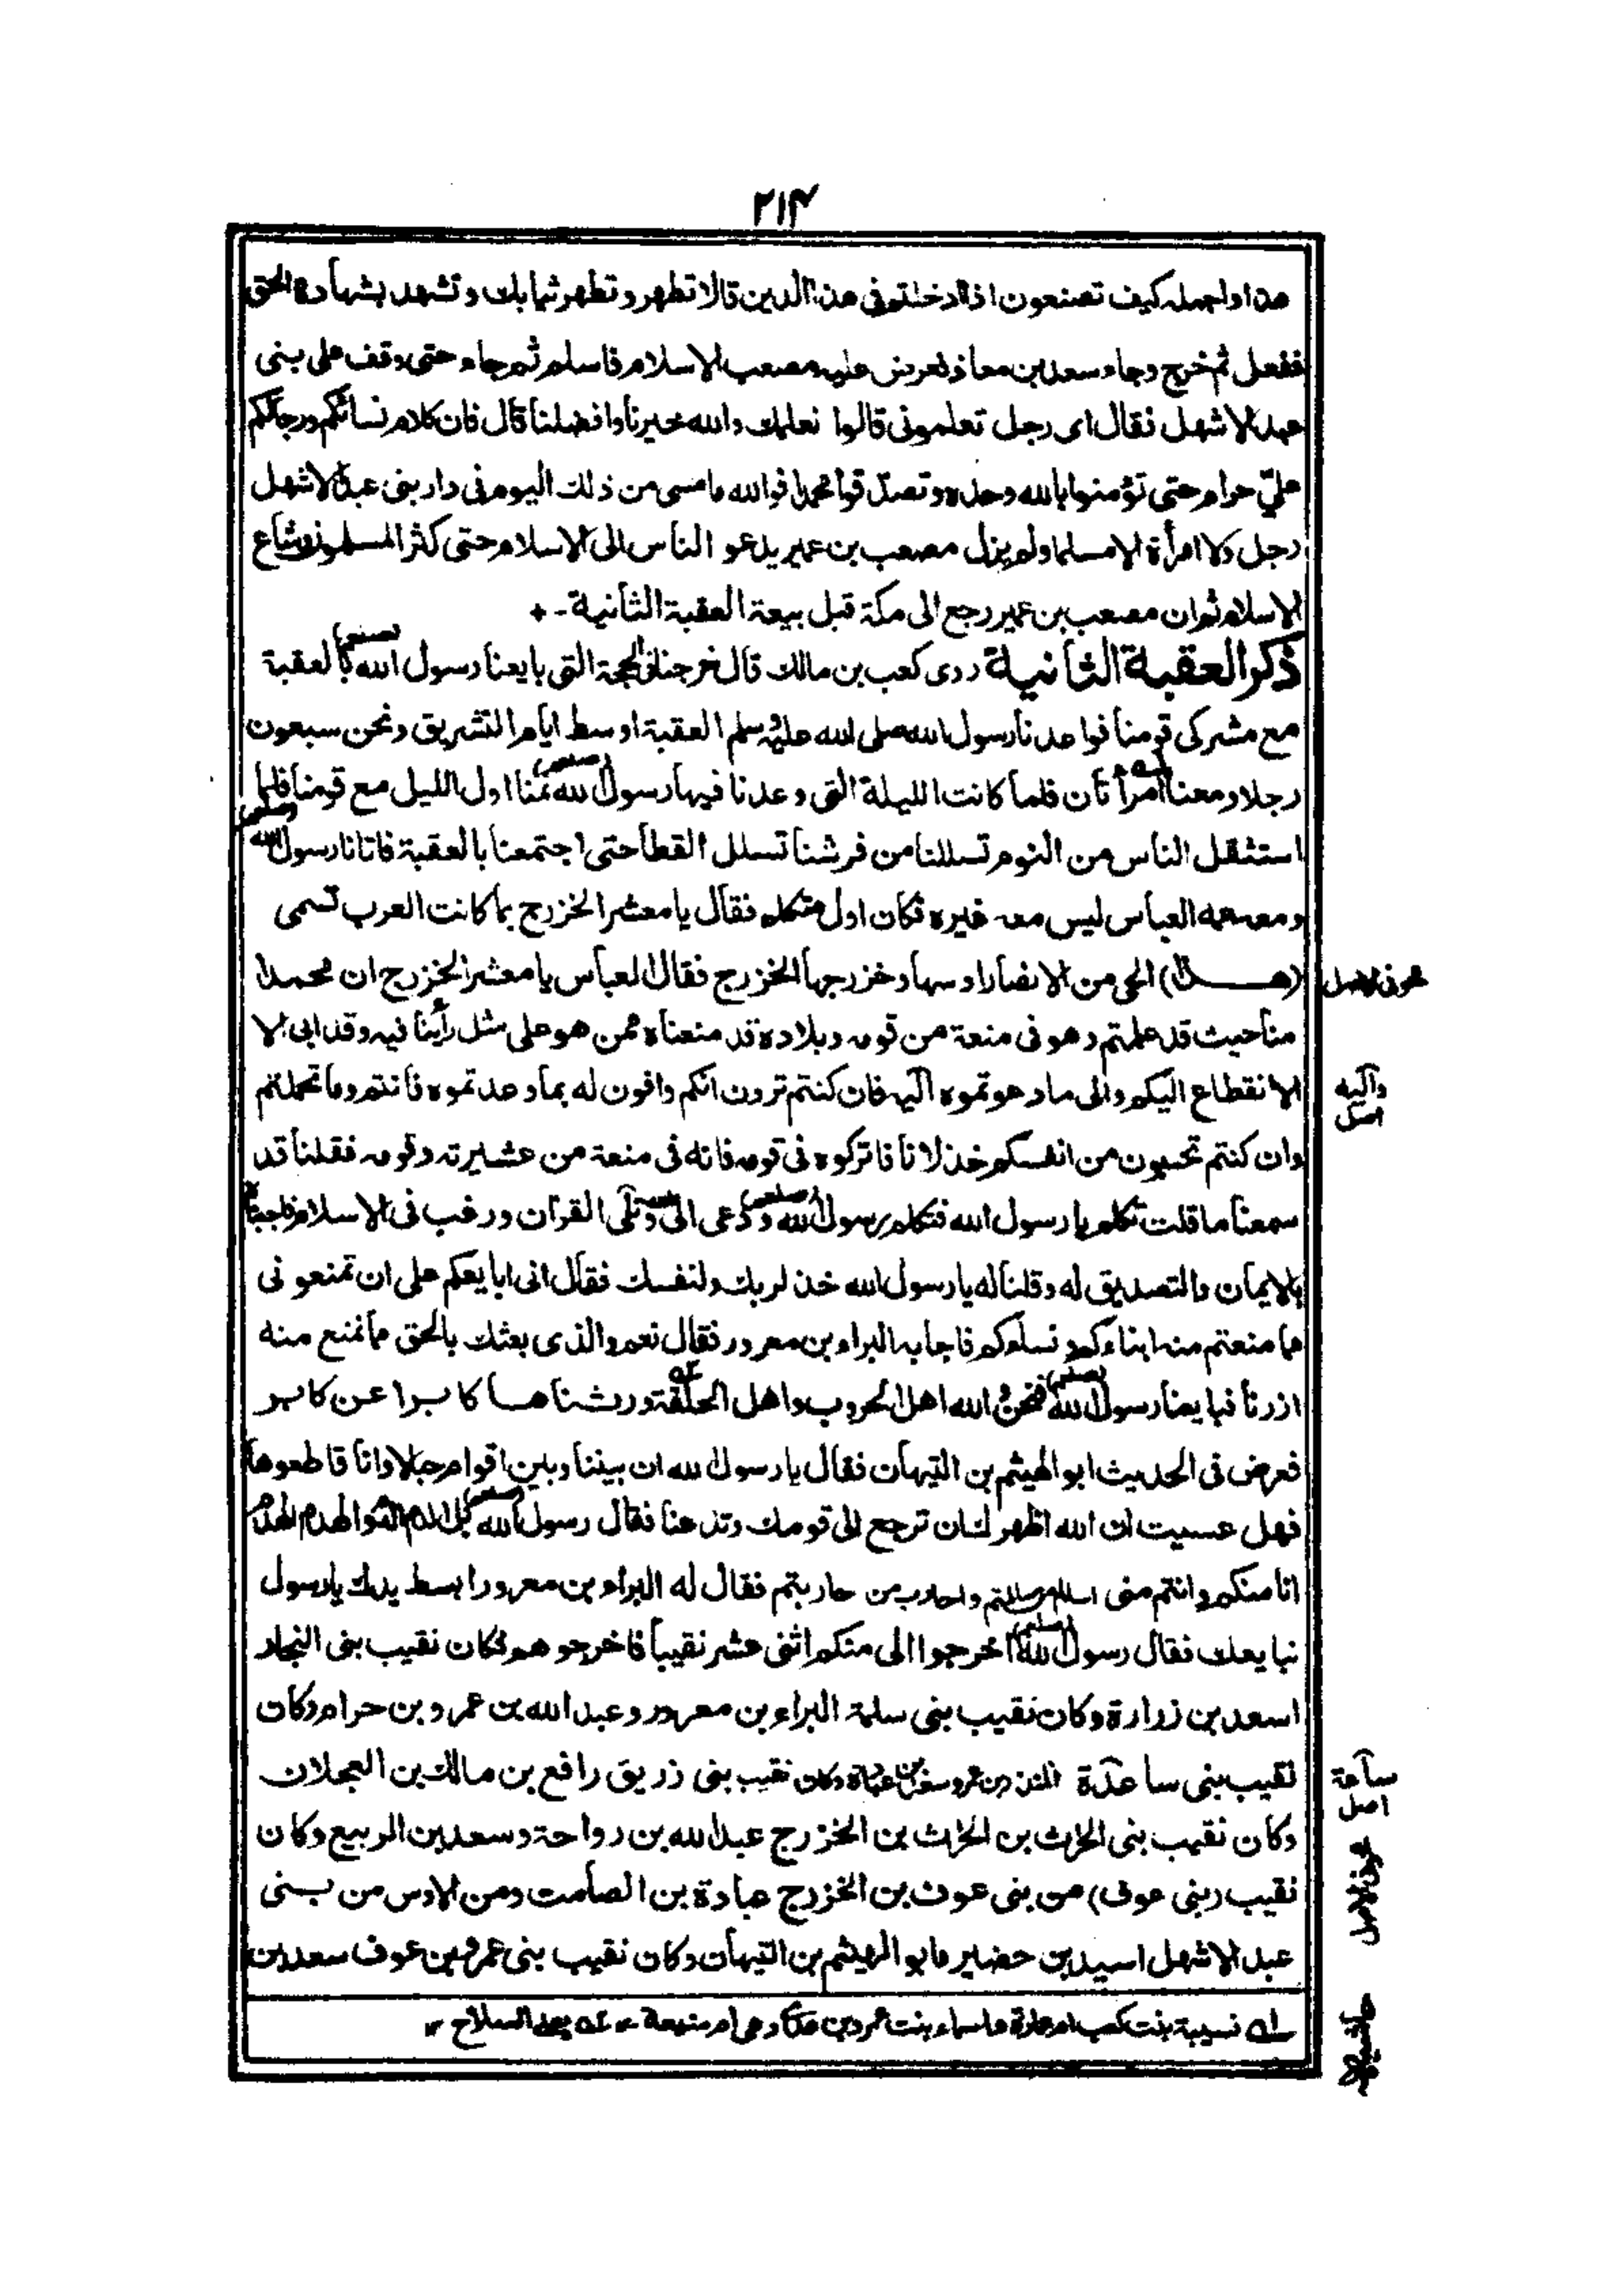 ٢١٤
هذا واجمله كيف تصنعون اذا دخلتم فى هذا الدين قالا تطهر و تطهر ثيابك و تشهد بشهادة الحق
ففعل ثم خرج وجاء سعد بن معاذ فعرض عليه مصعب الاسلام فاسلم ثم جاء حتى وقف على بنى
عبد الاشهل فقال اى رجل تعلمونى قالوا نعلمك والله خيرنا وافضلنا قال فان كلام نسائكم ورجالكم
علىّ حرام حتى تؤمنوا بالله وحده وتصدقوا محمدا فوالله ما مسى من ذلك اليوم فى دار بنى عبد الاشهل
رجل ولا امرأة الا مسلما ولم يزل مصعب بن عمير يدعو الناس الى الاسلام حتى كثر المسلمون وشاع
الاسلام ثم ان مصعب بن عمير رجع الى مكة قبل بيعة العقبة الثانية - +
ذكر العقبة الثانية روى كعب بن مالك قال خرجنا فى الحجة التى بايعنا رسول الله (صلعم) بالعقبة
مع مشركى قومنا فواعدنا رسول الله صلى الله عليه وسلم العقبة اوسط ايام التشريق ونحن سبعون
رجلا ومعنا امرأتان فلما كانت الليلة التى وعدنا فيها رسول الله (صلعم) نمنا اول الليل مع قومنا فلما
استثقل الناس من النوم تسللنا من فرشنا تسلل القطا حتى اجتمعنا بالعقبة فاتانا رسول الله (صلعم)
ومعه عمه العباس ليس معه غيره فكان اول متكلم فقال يا معشر الخزرج بما كانت العرب تسمى
(هذا) الحى من الانصار اوسها وخزرجها الخزرج فقال العباس يا معشر الخزرج ان محمدا
منا حيث قد علمتم وهو فى منعة من قومه وبلاده قد منعناه ممن هو على مثل رأينا فيه وقد ابى الا
الانقطاع اليكم والى ما دعوتموه اليه فان كنتم ترون انكم وافون له بما وعدتموه فانتم وما تحملتم
وان كنتم تحسبون من انفسكم خذلانا فاتركوه فى قومه فانه فى منعة من عشيرته وقومه فقلنا قد
سمعنا ما قلت تكلم يا رسول الله فتكلم رسول الله (صلعم) ودعى الى وتلى القرآن ورغب فى الاسلام فاجبناه
بالايمان والتصديق له وقلنا له يا رسول الله خذ لربك ولنفسك فقال انى ابايعكم على ان تمنعونى
مما منعتم منه ابناءكم ونساءكم فاجابه البراء بن معرور فقال نعم والذى بعثك بالحق مما نمنع منه
ازرنا فبايعنا رسول الله (صلعم) فنحن والله اهل الحروب واهل الحلقة ورثناها كابرا عن كابر
فعرض فى الحديث ابو الهيثم بن التيهان فقال يا رسول الله ان بيننا وبين اقوام حبالا وانا قاطعوها
فهل عسيت ان الله اظهرك ان ترجع الى قومك وتدعنا فقال رسول الله (صلعم) بل الدم الدم والهدم الهدم
انا منكم وانتم منى اسالم من سالمتم واحارب من حاربتم فقال له البراء بن معرور ابسط يدك يا رسول
نبايعك فقال رسول الله (صلعم) اخرجوا الى منكم اثنى عشر نقيبا فاخرجوهم فكان نقيب بنى النجار
اسعد بن زرارة وكان نقيب بنى سلمة البراء بن معرور وعبد الله بن عمرو بن حرام وكان
نقيب بنى ساعدة المنذر بن عمرو وسعد بن عبادة وكان نقيب بنى زريق رافع بن مالك بن العجلان
وكان نقيب بنى الحرث بن الحرث بن الخزرج عبد الله بن رواحة وسعد بن الربيع وكان
نقيب (بنى عوف) من بنى عوف بن الخزرج عبادة بن الصامت ومن الاوس من بنى
عبد الاشهل اسيد بن حضير وابو الهيثم بن التيهان وكان نقيب بنى عمرو بن عوف سعد بن
له نسيبة بنت كعب ام عمارة واسماء بنت عمرو بن وهى ام منيعة ٭ ته يعنى السلاح ٭
محو فى الاصل
واليه
اصل
ساعة
اصل
محو فى الاصل